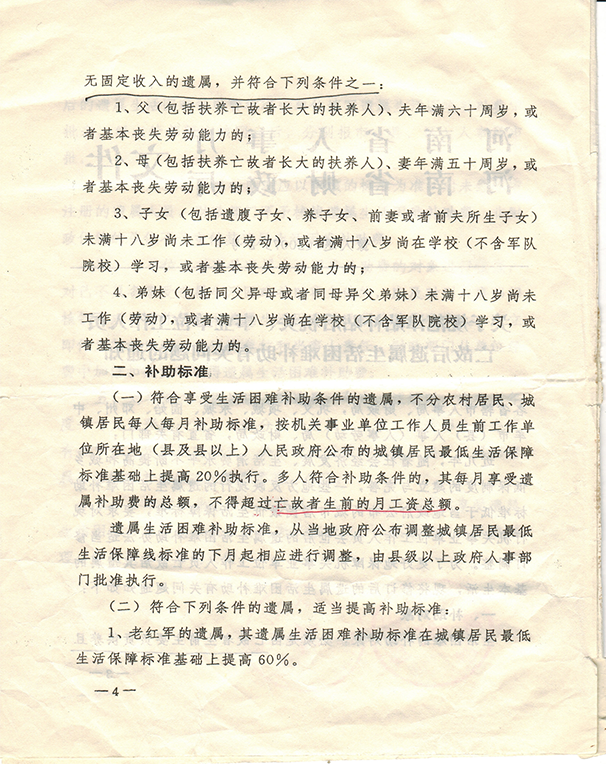 无固定收入的遗属，并符合下列条件之一：
1、父（包括扶养亡故者长大的扶养人）、夫年满六十周岁，或
者基本丧失劳动能力的；
2、母（包括扶养亡故者长大的扶养人）、妻年满五十周岁，或
者基本丧失劳动能力的；
3、子女（包括遗腹子女、养子女、前妻或者前夫所生子女）
未满十八岁尚未工作（劳动），或者满十八岁尚在学校（不含军队
院校）学习，或者基本丧失劳动能力的；
4、弟妹（包括同父异母或者同母异父弟妹）未满十八岁尚未
工作（劳动），或者满十八岁尚在学校（不含军队院校）学习，或
者基本丧失劳动能力的。
二、补助标准
（一）符合享受生活困难补助条件的遗属，不分农村居民、城
镇居民每人每月补助标准，按机关事业单位工作人员生前工作单
位所在地（县及县以上）人民政府公布的城镇居民最低生活保障
标准基础上提高20%执行。多人符合补助条件的，其每月享受遗
属补助费的总额，不得超过亡故者生前的月工资总额。
遗属生活困难补助标准，从当地政府公布调整城镇居民最低
生活保障线标准的下月起相应进行调整，由县级以上政府人事部
门批准执行。
（二）符合下列条件的遗属，适当提高补助标准：
1、老红军的遗属，其遗属生活困难补助标准在城镇居民最低
生活保障标准基础上提高60%。
—4—